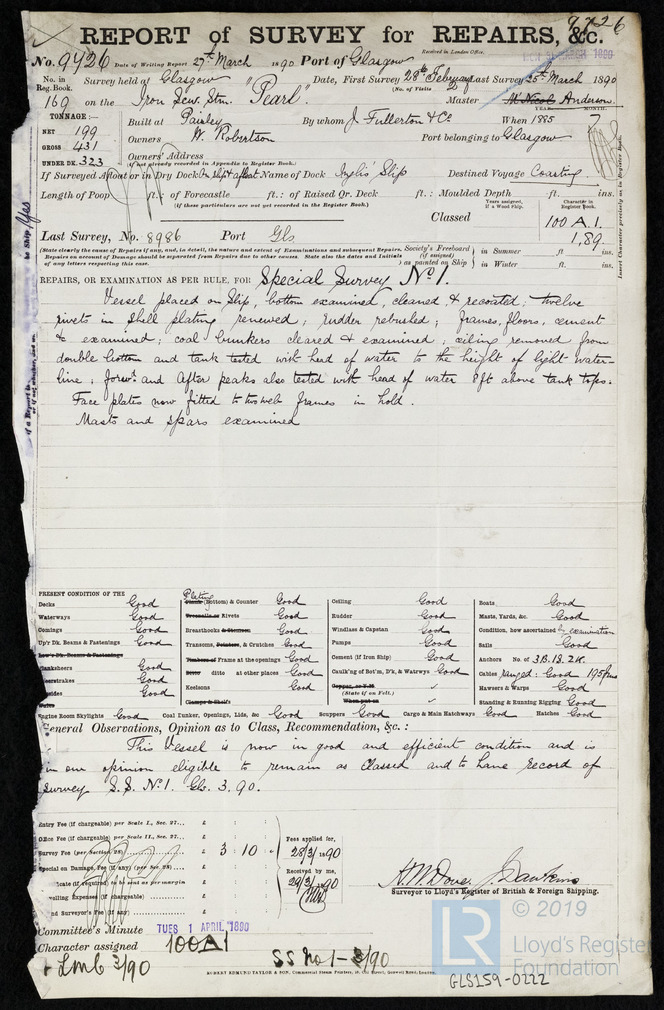 9426
REPORT of SURVEY for REPAIRS, &c.
Received in London Office.
No. 9426 Date of Writing Report 27th March 1890 Port of Glasgow
No. in Reg. Book. Survey held at Glasgow Date, First Survey 28th February Last Survey 25th March 1890
(No. of Visits
169 on the Iron Scw. Stm. "Pearl". Master McNicol Anderson
TONNAGE:—
YEAR. MONTH.
NET 199 Built at Paisley By whom J. Fullerton & Co When 1885 7
GROSS 431 Owners W. Robertson Port belonging to Glasgow
UNDER DK. 323 Owners' Address
(if not already recorded in Appendix to Register Book.)
If Surveyed Afloat or in Dry Dock On slip & afloat Name of Dock Inglis' Slip Destined Voyage Coasting
Length of Poop ft. of Forecastle ft.: of Raised Qr. Deck ft.: Moulded Depth ft. ins.
(if these particulars are not yet recorded in the Register Book.)
Years assigned, if a Wood Ship. Character in Register Book.
Classed 100 A.1.
1,89.
Last Survey, No. 8986 Port Gls
(State clearly the cause of Repairs if any, and in detail, the nature and extent of Examinations and subsequent Repairs.
Repairs on account of Damage should be separated from Repairs due to other causes. State also the dates and Initials
of any letters respecting this case.
Society's Freeboard (if assigned) as painted on Ship in Summer ft. ins.
in Winter ft. ins.
Insert Character precisely as in Register Book.
REPAIRS, OR EXAMINATION AS PER RULE, FOR Special Survey No 1.
Vessel placed on slip, bottom examined, cleaned & recoated; twelve
rivets in shell plating renewed; rudder rebushed; frames, floors, cement
&c examined; coal bunkers cleared & examined; ceiling removed from
double bottom and tank tested with head of water to the height of light water-
line; forwd and after peaks also tested with head of water 8ft above tank tops.
Face plates now fitted to two web frames in hold.
Masts and spars examined
PRESENT CONDITION OF THE
Decks Good
Waterways Good
Comings Good
Up'r Dk. Beams & Fastenings Good
Low'r Dk. Beams & Fastenings
Planksheers Good
Sheerstrakes Good
Topsides Good
Wales
Plating
Plank (Bottom) & Counter Good
Treenails or Rivets Good
Breasthooks & Stemson Good
Transoms, Pointers, & Crutches Good
Timbers or Frame at the openings Good
Ditto ditto at other places Good
Keelsons Good
Clamps & Shelfs
Ceiling Good
Rudder Good
Windlass & Capstan Good
Pumps Good
Cement (if Iron Ship) Good
Caulk'ng of Bot'm, D'k, & Watrwys Good
Copper, or Y.M. ✓
(State if on Felt.)
When put on ✓
Boats Good
Masts, Yards, &c. Good
Condition, how ascertained by examination
Sails Good
Anchors No. of 3B.1S.2K.
Cables ranged: Good 195fms
Hawsers & Warps Good
Standing & Running Rigging Good
Engine Room Skylights Good Coal Bunker, Openings, Lids, &c Good Scuppers Good Cargo & Main Hatchways Good Hatches Good
General Observations, Opinion as to Class, Recommendation, &c.:
This vessel is now in good and efficient condition and is
in our opinion eligible to remain as classed and to have record of
survey S.S. No 1. Gls. 3.90.
Entry Fee (if chargeable) per Scale I., Sec. 27... £
Office Fee (if chargeable) per Scale II., Sec. 27... £
Survey Fee (per Section 28) £ 3 : 10 :
Special or Damage Fee (if any) (per Sec. 28) £
Certificate (if required) to be sent as per margin
Travelling Expenses (if chargeable) £
2nd Surveyor's Fee (if any) £
Fees applied for,
28/3/1890
Received by me,
29/3/1890
A. M. Dove. J. Dawkins
Surveyor to Lloyd's Register of British & Foreign Shipping.
Committee's Minute TUES 1 APRIL 1890
Character assigned 100A1
+ LMC 3/90 SS No 1 - 3/90
ROBERT EDMUND TAYLOR & SON, Commercial Steam Printers, 19, Old Street, Goswell Road, London.
LR
© 2019
Lloyd's Register
Foundation
GLS159-0222